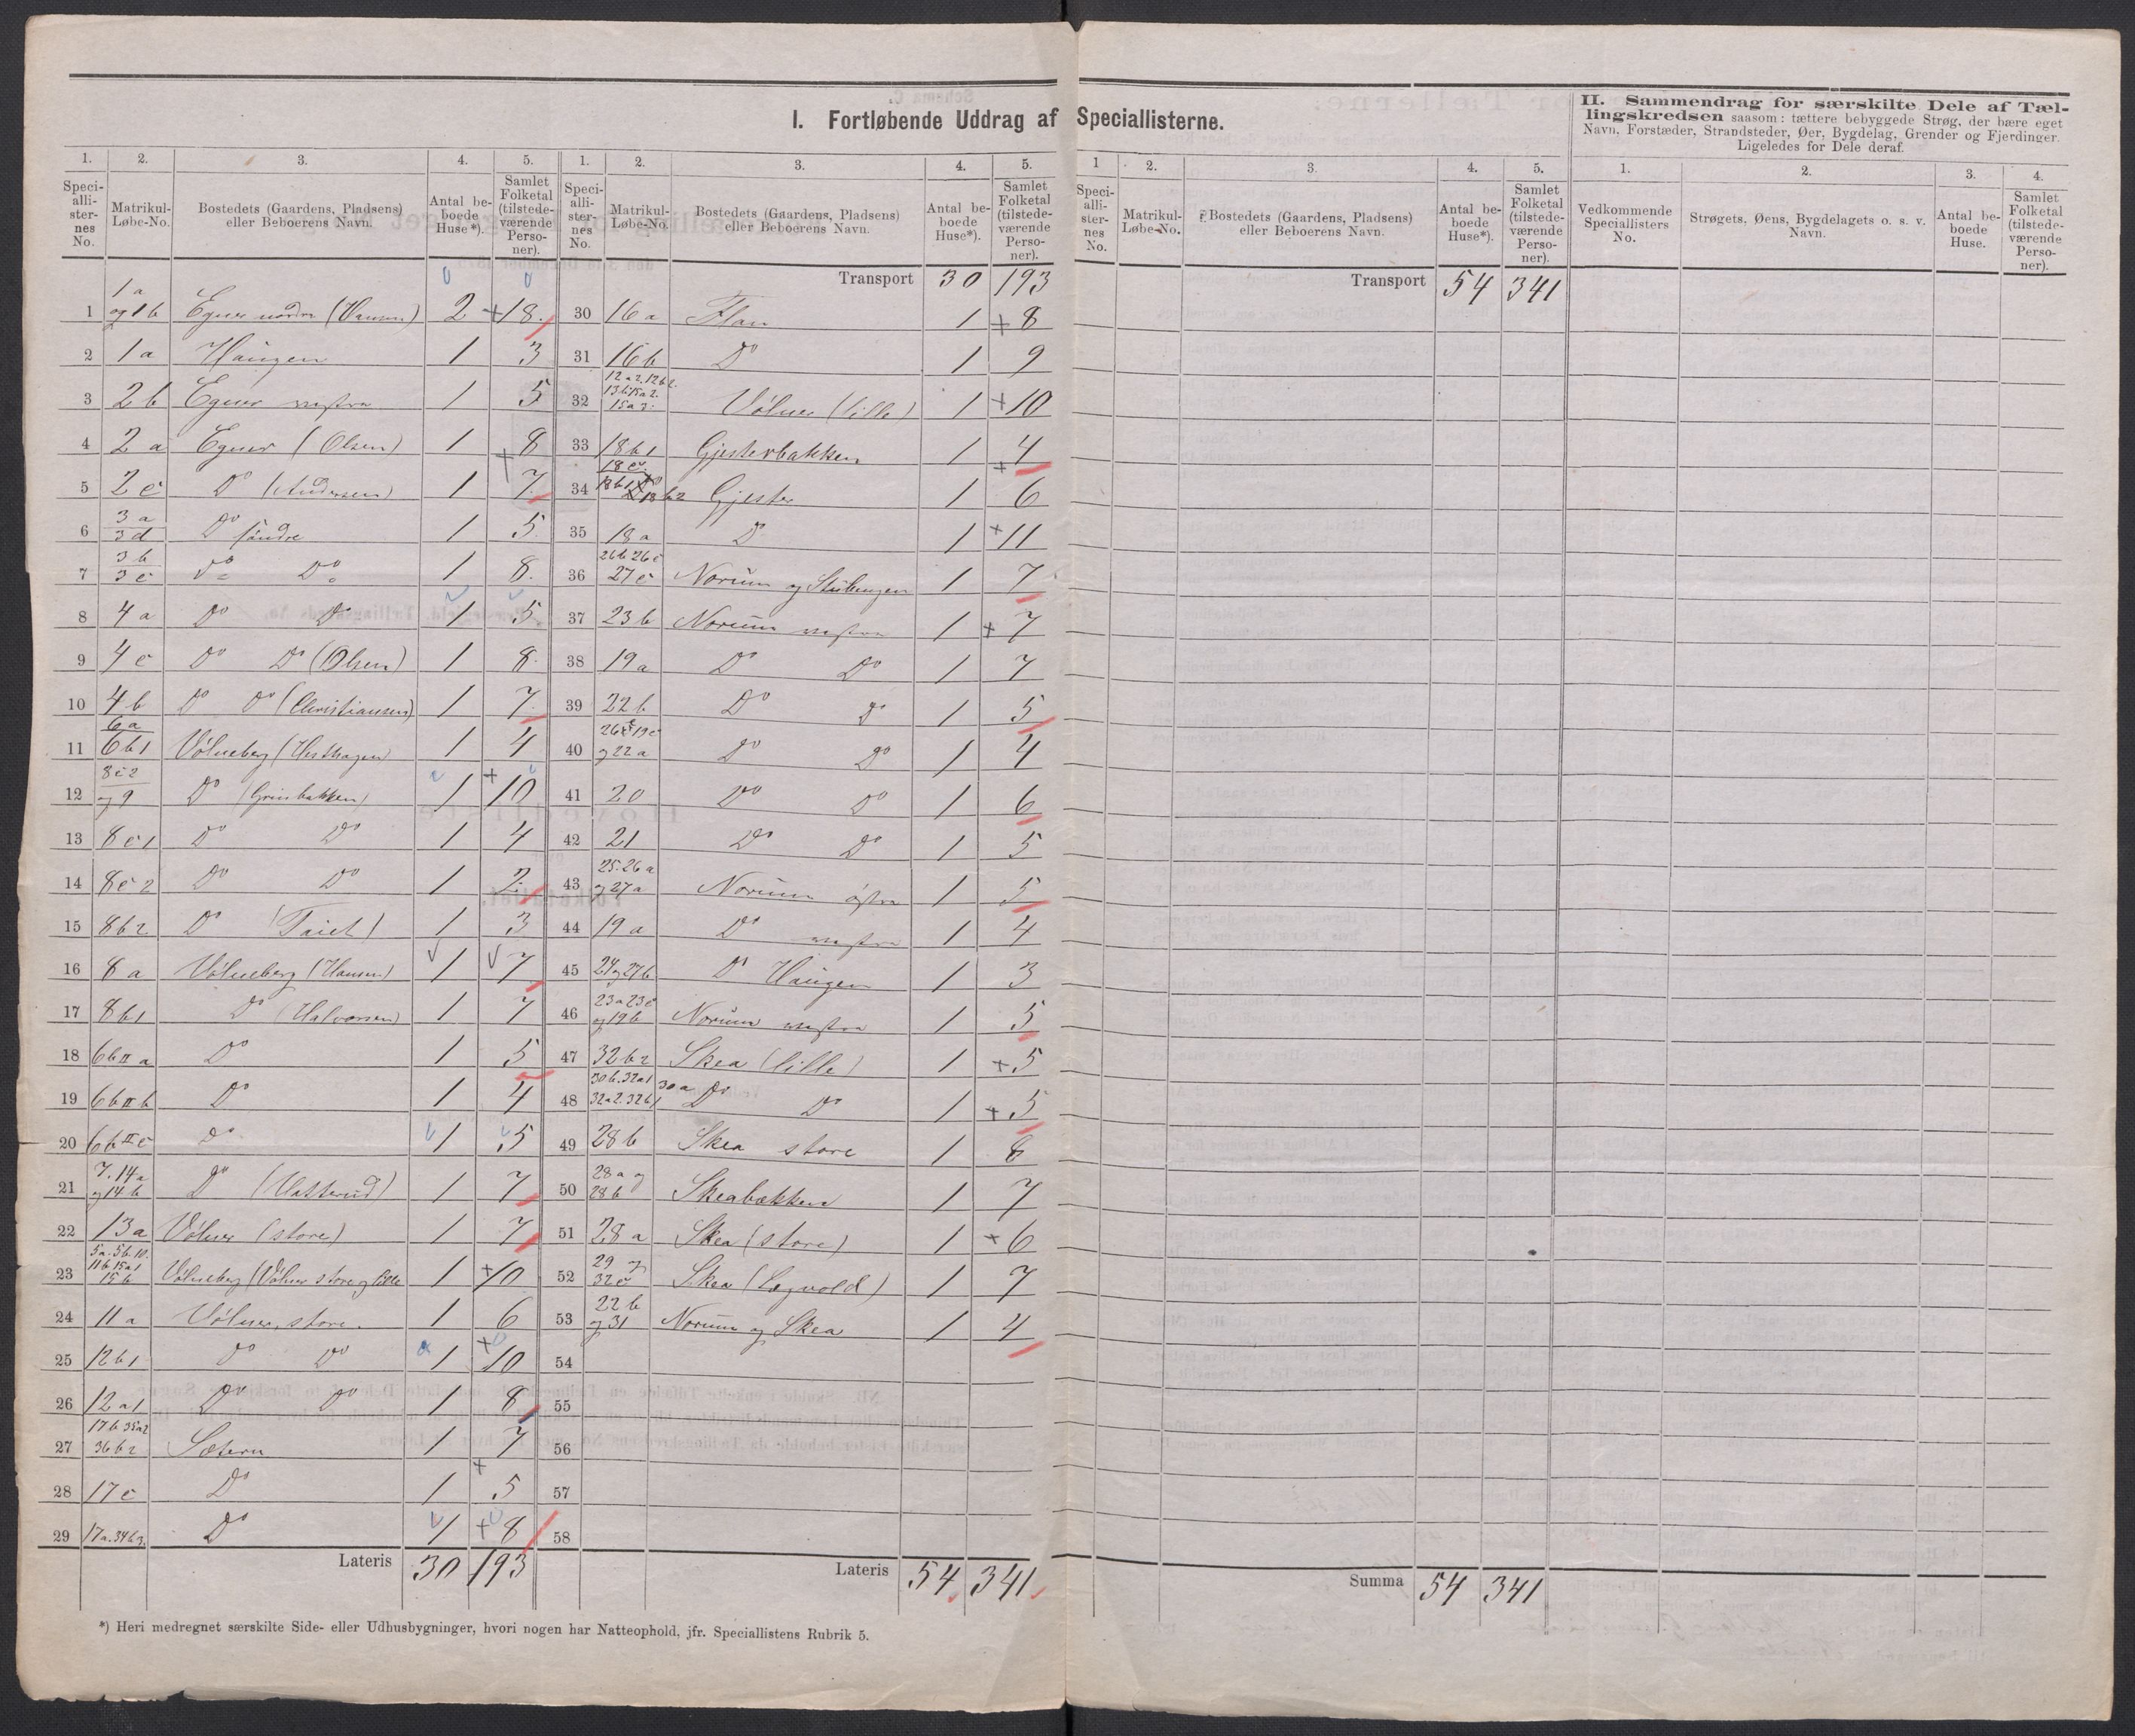 I. Fortløbende Uddrag af Speciallisterne.
II. Sammendrag for særskilte Dele af Tællingskredsen saasom: tættere bebyggede Strøg, der bære eget
Navn, Forstæder, Strandsteder, Øer, Bygdelag, Grender og Fjerdinger.
Ligeledes for Dele deraf.
1. 2. 3. 4. 5. 1. 2. 3. 4. 5. 1 2. 3. 4. 5. 1. 2. 3. 4.
Speciallisternes No. Matrikul-Løbe-No. Bostedets (Gaardens, Pladsens) eller Beboerens Navn. Antal beboede Huse*). Samlet Folketal (tilstedeværende Personer).
Speciallisternes No. Matrikul-Løbe-No. Bostedets (Gaardens, Pladsens) eller Beboerens Navn. Antal beboede Huse*). Samlet Folketal (tilstedeværende Personer).
Speciallisternes No. Matrikul-Løbe-No. Bostedets (Gaardens, Pladsens) eller Beboerens Navn. Antal beboede Huse*). Samlet Folketal (tilstedeværende Personer).
Vedkommende Speciallisters No. Strøgets, Øens, Bygdelagets o. s. v. Navn. Antal beboede Huse. Samlet Folketal (tilstedeværende Personer).
1 1a og 1b Egner nordre (Hansen) 2 18
2 1a Haugen 1 3
3 2b Egner vestre 1 5
4 2a Egner (Olsen) 1 8
5 2c Do (Andersen) 1 7
6 3a 3d Do søndre 1 5
7 3b 3c Do Do 1 8
8 4a Do Do 1 5
9 4c Do Do (Olsen) 1 8
10 4b Do Do (Christiansen) 1 7
11 6a 6b1 Vølneberg (Hesthagen) 1 4
12 8c2 og 9 Do (Grinbakken) 1 10
13 8c1 Do Do 1 4
14 8c2 Do Do 1 2
15 8b2 Do 1 3
16 8a Vølneberg (Hansen) 1 7
17 8b1 Do (Halvorsen) 1 7
18 6b II a Do 1 5
19 6b II b Do 1 4
20 6b II c Do 1 5
21 7. 14a og 14b Do 1 7
22 13a Vølner (store) 1 7
23 5a. 5b. 10. 11b 15a1 15b Vølneberg (Vølner store og lille 1 10
24 11a Vølner, store. 1 6
25 12b1 Do Do 1 10
26 12a1 Do Do 1 8
27 17b 35a2 36b2 Sætern 1 7
28 17c Do 1 5
29 17a. Do 1 8
Lateris 30 193
Transport 30 193
30 16a Flan 1 8
31 16b Do 1 9
32 12a2. 12b2. 15a3. Vølner (lille) 1 10
33 18b1 Gjesterbakken 1 4
34 18c. 18b2 Gjester 1 6
35 18a Do 1 11
36 26b 26c 27c Norum og Stubengen 1 7
37 23b Norum vestre 1 7
38 19a Do Do 1 7
39 22b Do Do 1 5
40 19c og 22a Do Do 1 4
41 20 Do Do 1 6
42 21 Do Do 1 5
43 25. 26a og 27a Norum østre 1 5
44 19a Do vestre 1 4
45 24 og 27b Do Haugen 1 3
46 23a 23c og 19b Norum vestre 1 5
47 32b2 Skea (lille) 1 5
48 30b. 32a1 30a 32a2. 32b1 Do Do 1 5
49 28b Skea store 1 6
50 28a og 28b Skeabakken 1 7
51 28a Skea (store) 1 6
52 29 og 32c Skea (Lognvold) 1 7
53 22b og 31 Norum og Skea 1 4
54
55
56
57
58
Lateris 54 341
Transport 54 341
Summa 54 341
*) Heri medregnet særskilte Side- eller Udhusbygninger, hvori nogen har Natteophold, jfr. Speciallistens Rubrik 5.